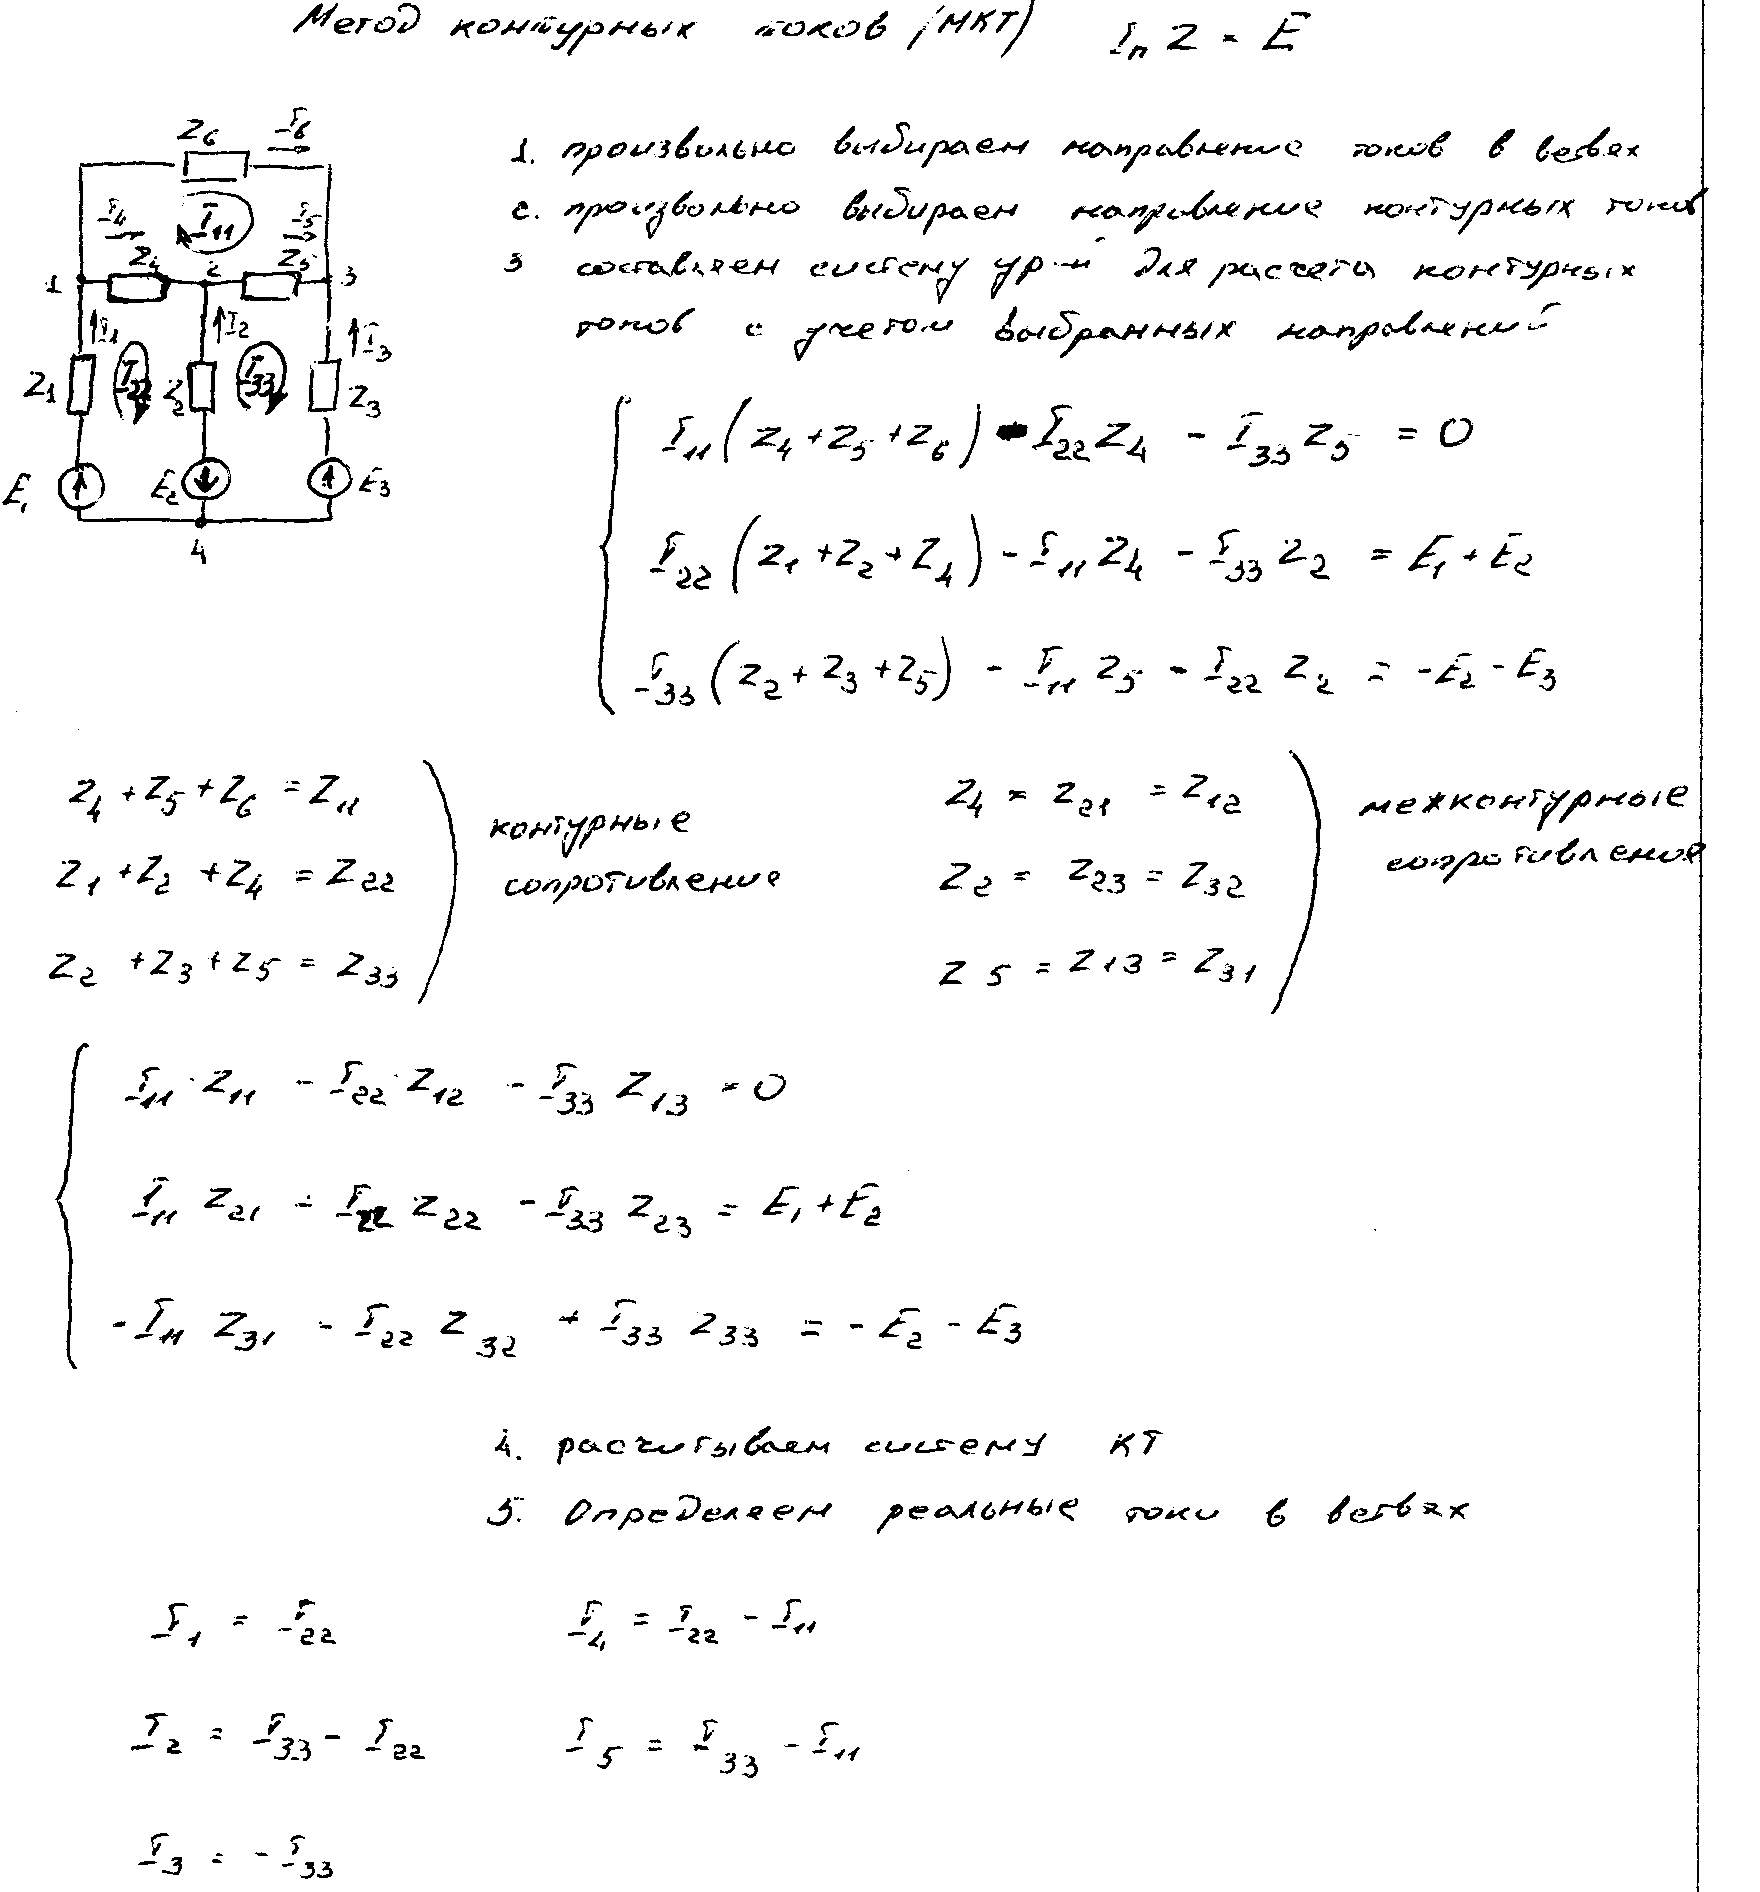 Метод контурных токов (МКТ) I̲п Z = E
Z6 I̲6
1. произвольно выбираем направление токов в ветвях
2. произвольно выбираем направление контурных токов
I̲4 I̲11 I̲5
Z4 2 Z5
1 3
3 составляем систему ур-й для расчета контурных
токов с учетом выбранных направлений
I̲1 I2 I̲3
Z1 I̲22 Z2 I̲33 Z3
E1 E2 E3
4
I̲11 (Z4 + Z5 + Z6) - I̲22 Z4 - I̲33 Z5 = 0
I̲22 (Z1 + Z2 + Z4) - I̲11 Z4 - I̲33 Z2 = E1 + E2
I̲33 (Z2 + Z3 + Z5) - I̲11 Z5 - I̲22 Z2 = -E2 - E3
Z4 + Z5 + Z6 = Z11
Z1 + Z2 + Z4 = Z22
Z2 + Z3 + Z5 = Z33
контурные
сопротивление
Z4 = Z21 = Z12
Z2 = Z23 = Z32
Z5 = Z13 = Z31
межконтурные
сопротивление
I̲11 · Z11 - I̲22 · Z12 - I̲33 Z13 = 0
I̲11 Z21 - I̲22 Z22 - I̲33 Z23 = E1 + E2
- I̲11 Z31 - I̲22 Z32 + I̲33 Z33 = - E2 - E3
4. расчитываем систему КТ
5. Определяем реальные токи в ветвях
I̲1 = I̲22 I̲4 = I̲22 - I̲11
I̲2 = I̲33 - I̲22 I̲5 = I̲33 - I̲11
I̲3 = - I̲33